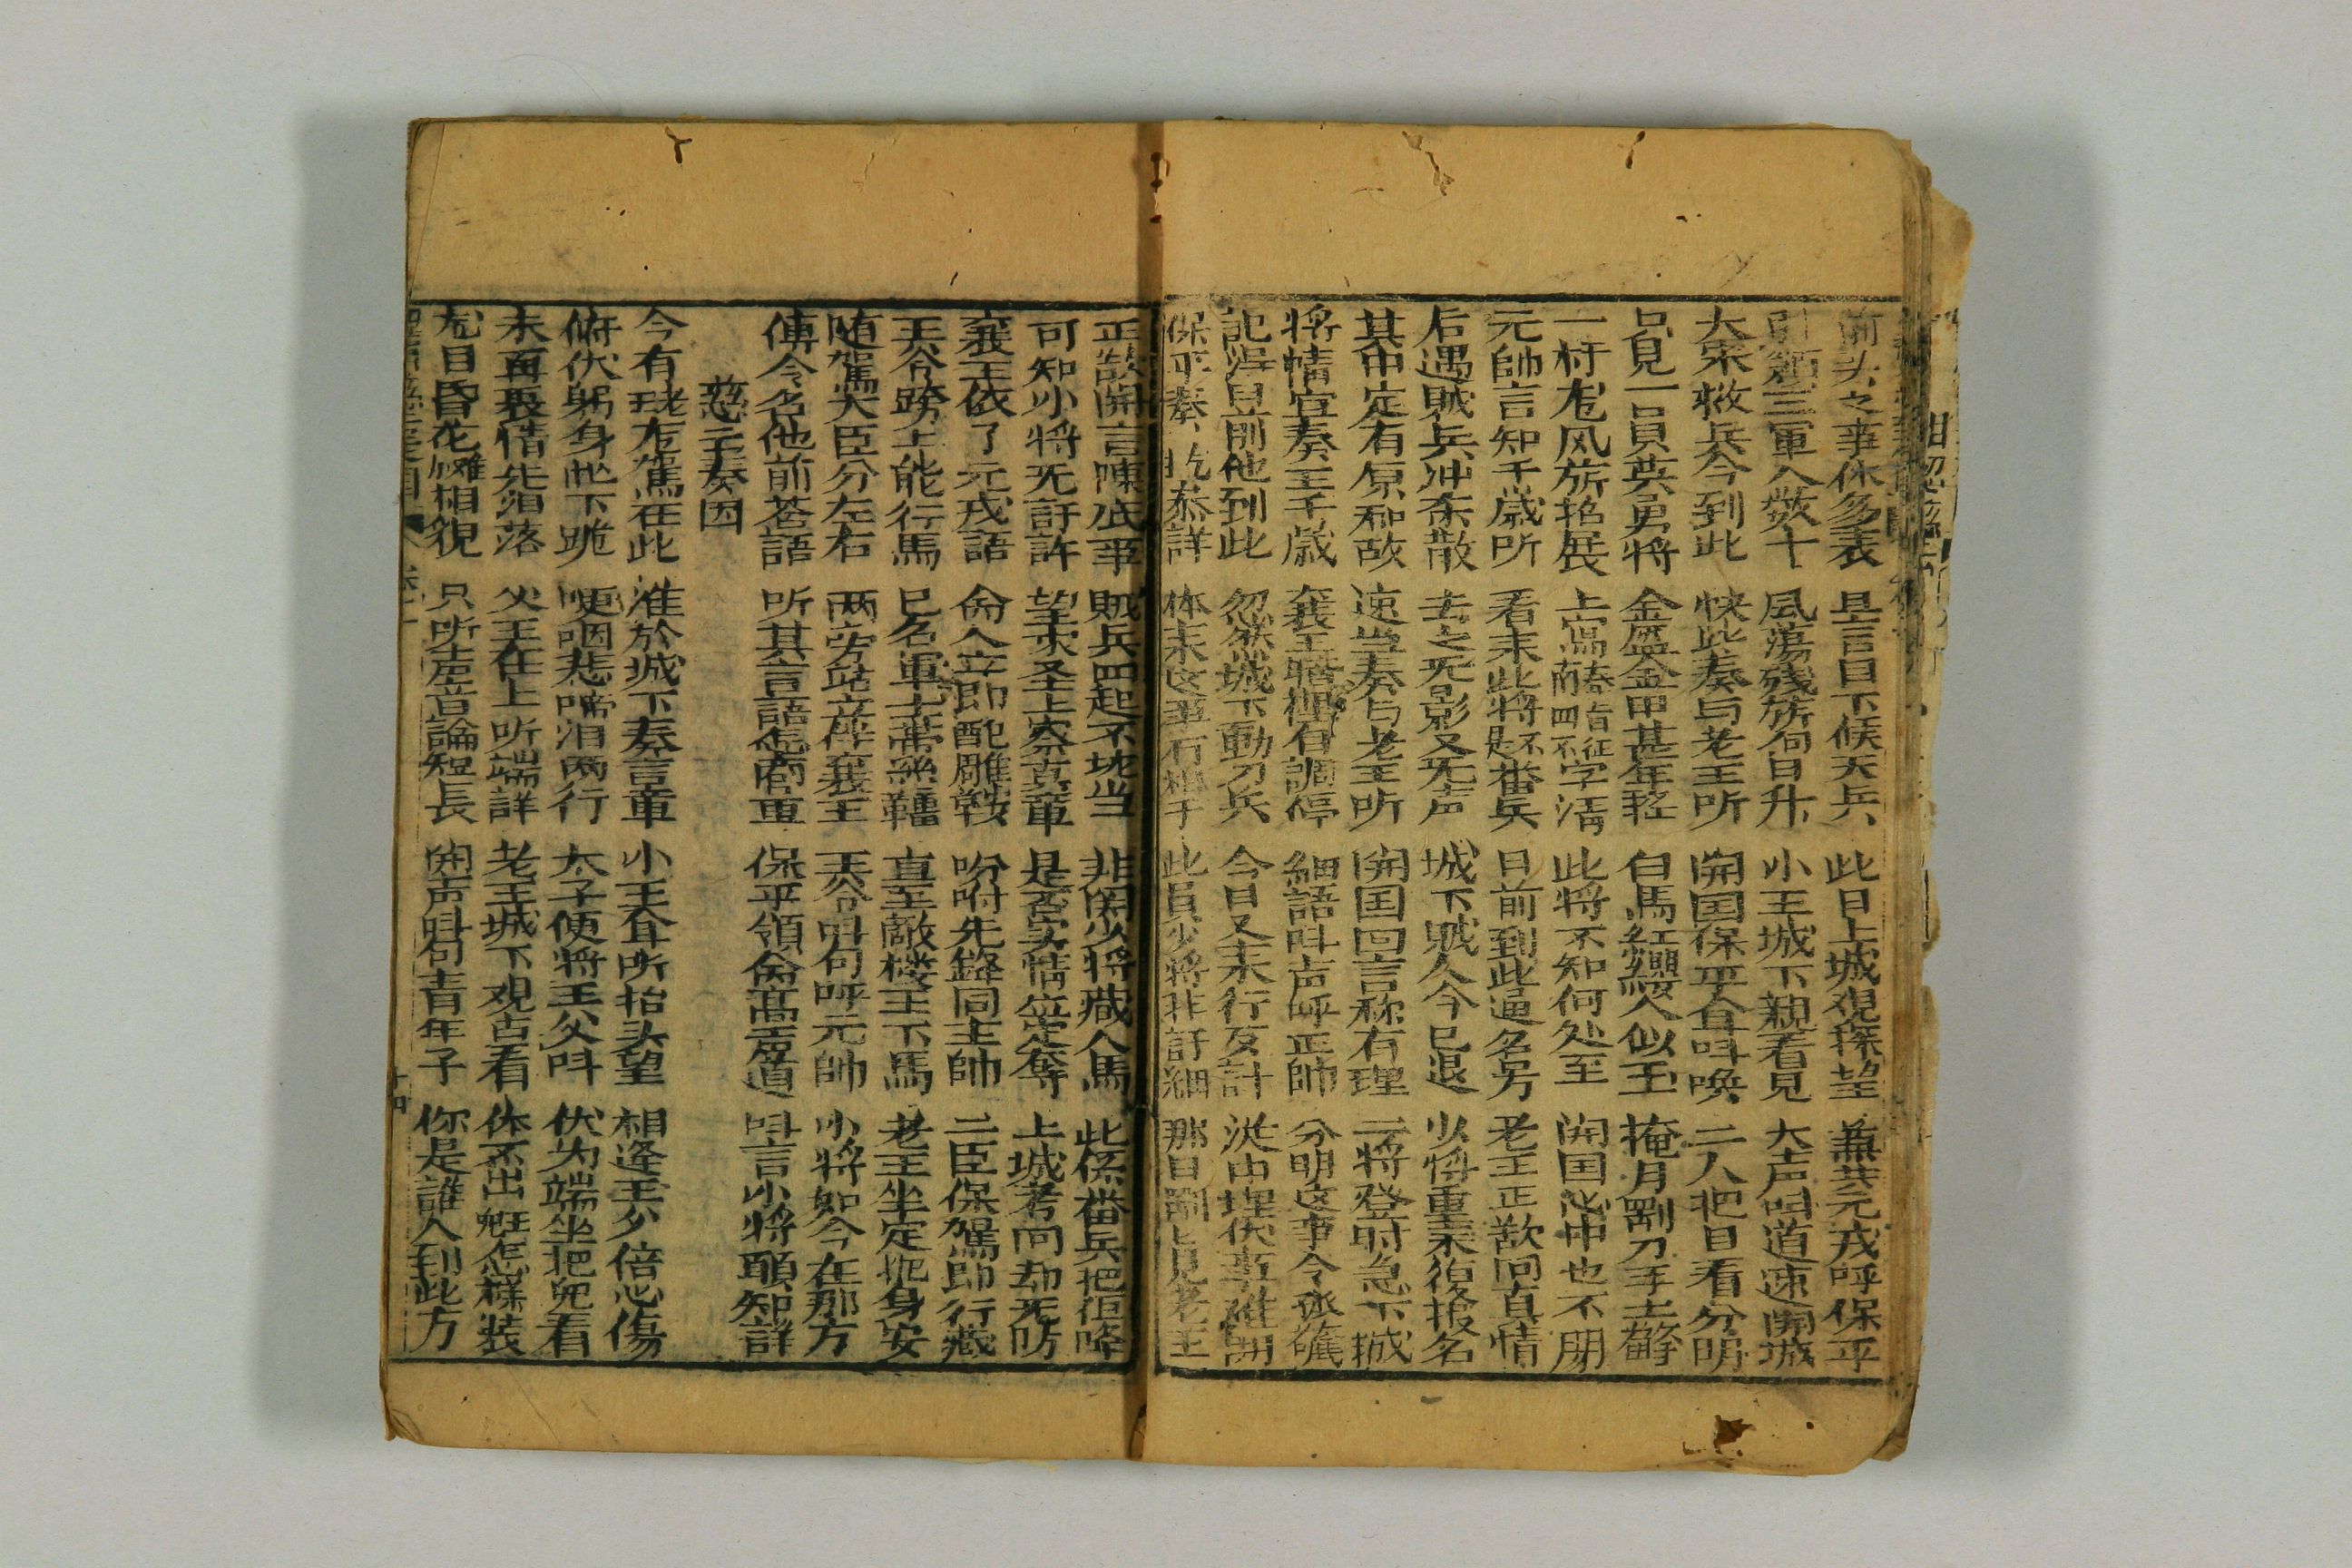 前头之事休多表 是言目下候天兵 此日上城覌探望 兼共元戎呼保平
引領三軍人数十 風蕩殘旂向日升 小王城下親看見 大声呌道速開城
大衆救兵今到此 快些奏与老王听 開国保平耳呌喚 二人把目看分明
只見一員英勇将 金盔金甲甚年轻 白馬紅纓人似玉 掩月剛刀手去擎
一杆旂风旂招展 上寫 征 字清 此将不知何处至 開国心中也不明
元帥言知千歳听 看耒此将是不番兵 日前到此逼名另 老王正欲问真情
后遇賊兵冲杀散 去之旡影又旡声 城下賊人今已退 少将重耒復报名
其中定有原和故 速当奏与老王听 開国回言称有理 二将登时急下城
将情宣奏王千歳 襄王暗裡自調停 細語呌声呼正帥 分明这事令孤
記得 前他到此 忽然城下動刀兵 今日又耒行反計 从中埋伏事难開
保平奏 恭詳 体耒这 此員少将非計細 那日 见老王
正欲開言陳底事 賊兵四起不地当 非関少将藏人馬 此係番兵把但降
可知小将旡計許 望求圣上察真章 是否实情並定奪 上城考问却旡防
襄王依了元戎語 命人立即配雕鞍 吩咐先鋒同主帥 二臣保駕即行藏
天谷跨上能行馬 已名軍士带絲韁 直至敵楼王下馬 老王坐定把身安
随駕大臣分左右 两旁站立伴襄王 天谷呌句呼元帥 小将如今在那方
傳令名他前荅語 听其言語怎商量 保平領命高声道 呌言小将願知詳
慈云奏因
今有珑 駕在此 准於城下奏言章 小王耳听抬头望 相逢王父倍心傷
俯伏躬身忙下跪 哽咽悲啼泪两行 太子便将王父呌 伏为端坐把児看
未再裹情先泪落 父王在上听端詳 老王城下观占看 体不出 怎樣装
 目昏花难相貌 只听声音論短長 開声呌句青年子 你是誰人到此方